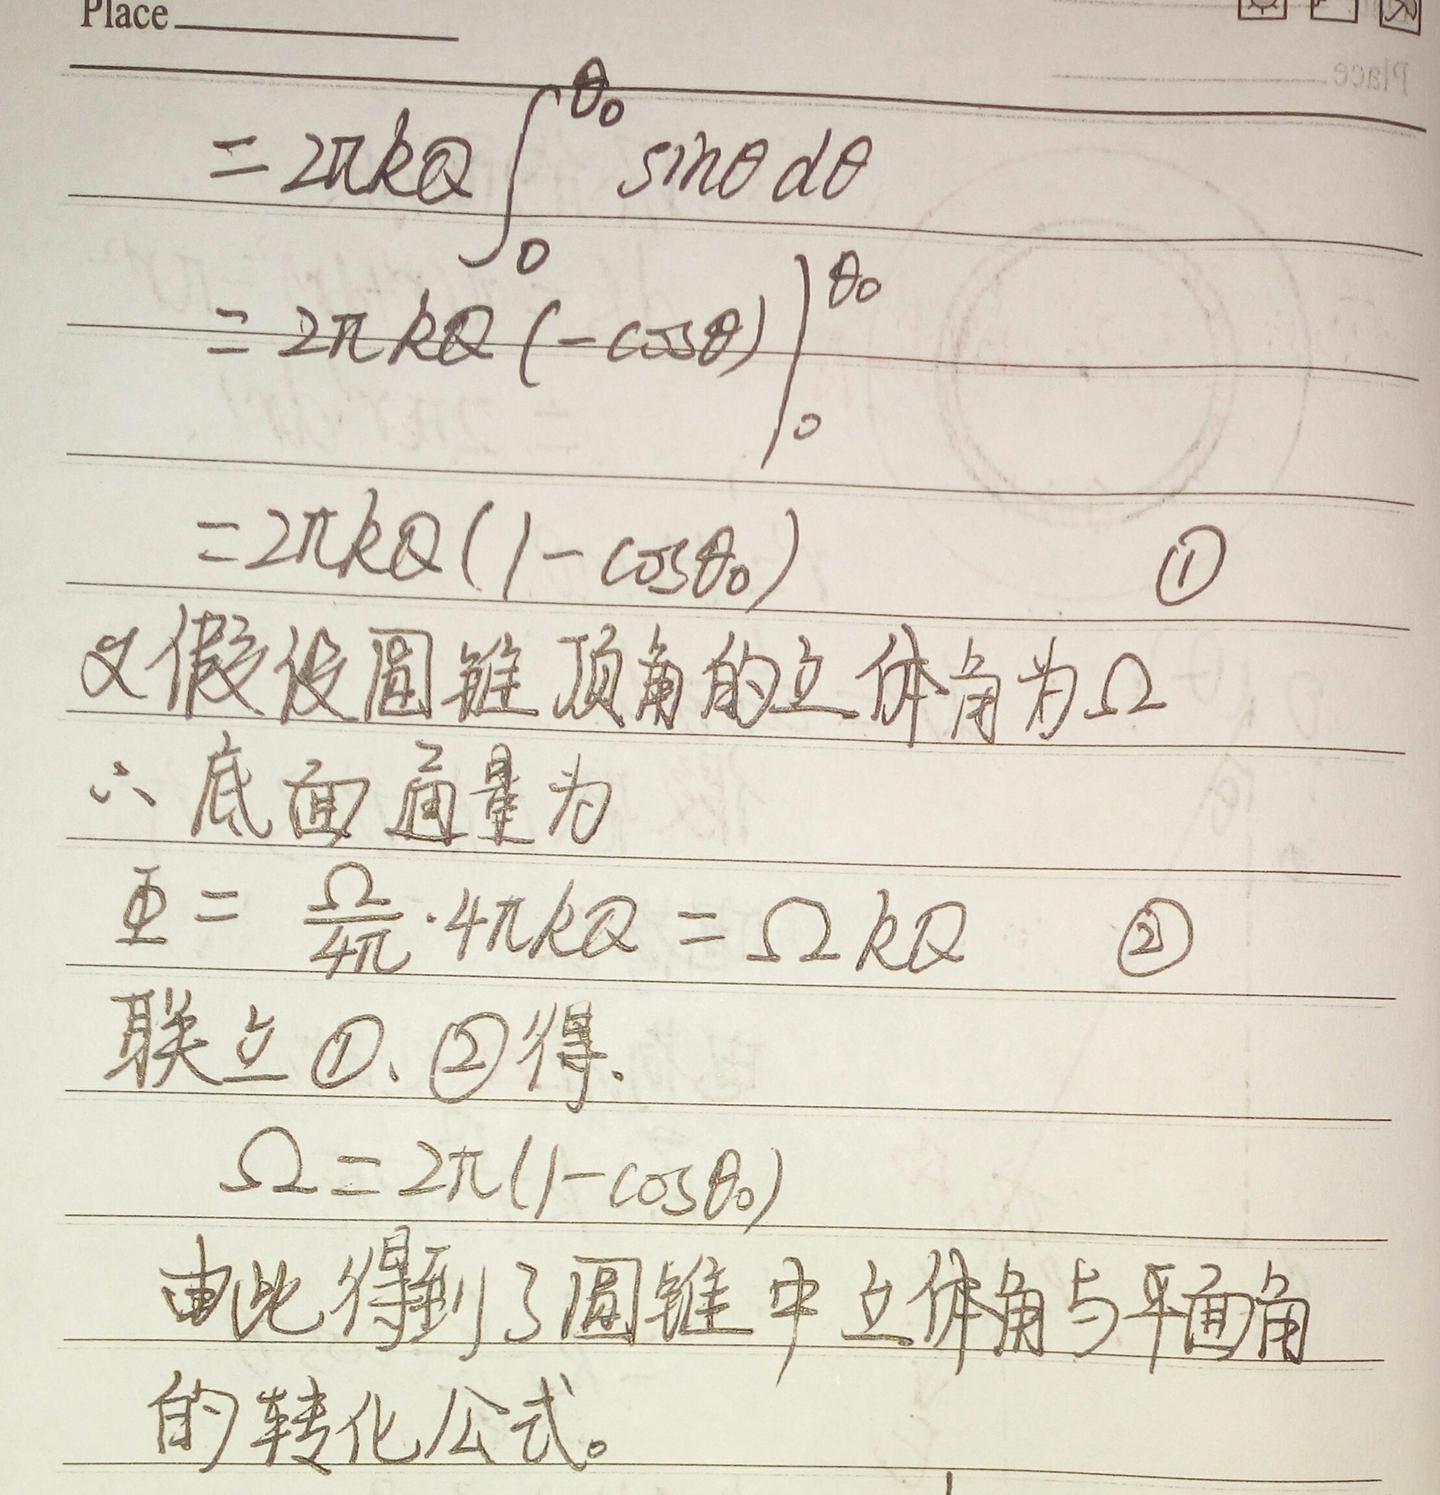 Place
Place
= 2πkQ ∫₀^θ₀ sinθ dθ
= 2πkQ (-cosθ) |₀^θ₀
= 2πkQ (1 - cosθ₀) ①
又假设圆锥顶角的立体角为Ω
∴ 底面通量为
Φ = Ω/4π · 4πkQ = ΩkQ ②
联立①、②得.
Ω = 2π(1-cosθ₀)
由此得到了圆锥中立体角与平面角
的转化公式。